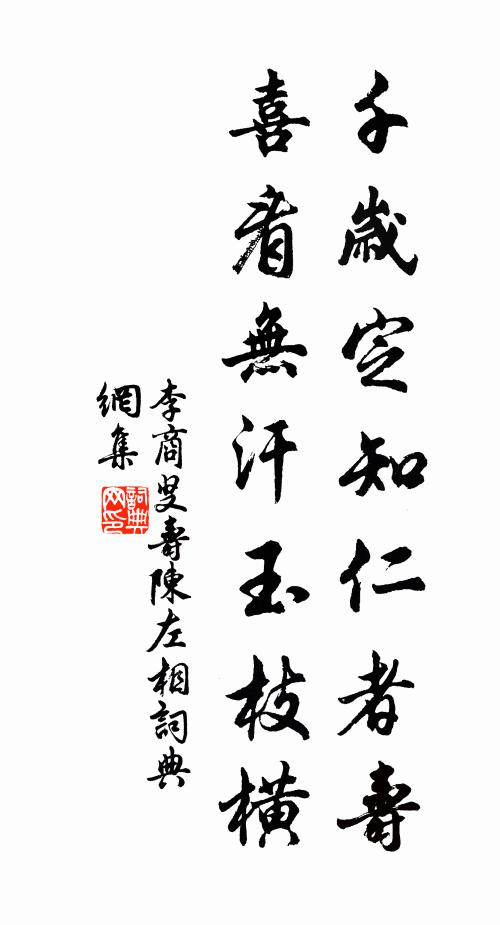 千歲定知仁者壽
喜看無汗玉枝橫
李商叟壽陳左相詞典
網集
詞典
网印